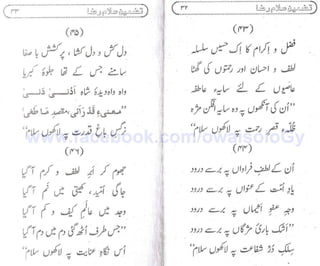 تضمین سلام رضا
۳۲
(۴۳)
فضل و اکرام کا اک حسیں سلسلہ
لطف و احسان اور رحمتوں کی گھٹا
عاصیوں کے لئے سایۂ عاطفہ
”اُن کی آنکھوں پہ وہ سایہ افگن مژہ
ظلّۂ قصرِ رحمت پہ لاکھوں سلام“
(۴۴)
اُن کے لطفِ فراواں پہ برسے درود
پہ برسے درود
وجہِ عفوِ پہ برسے درود
”اشکباریِ مژگاں پہ برسے درود
سلکِ دُرِّ شفاعت پہ لاکھوں سلام“
تضمین سلام رضا
۳۳
(۴۵)
دل کش و دل کشا، پرکشش با صفا
سامنے جس کے تھا جلوۂ کبریا
واہ واہ دیدۂ شاہِ
”معنیِ قَدْ رَاٰی مقصدِ مَا طَغٰی
نرگسِ باغِ قدرت پہ لاکھوں سلام“
(۴۶)
جھوم کر ابرِ لطف و کرم آ گیا
جاگی اُمید، کھیتی میں نم آ گیا
وجد میں عالمِ کیف و کم آ گیا
”جس طرف اُٹھ گئی دم میں دم آ گیا
اُس نگاہِ عنایت پہ لاکھوں سلام“
www.facebook.com/owaisoloGy